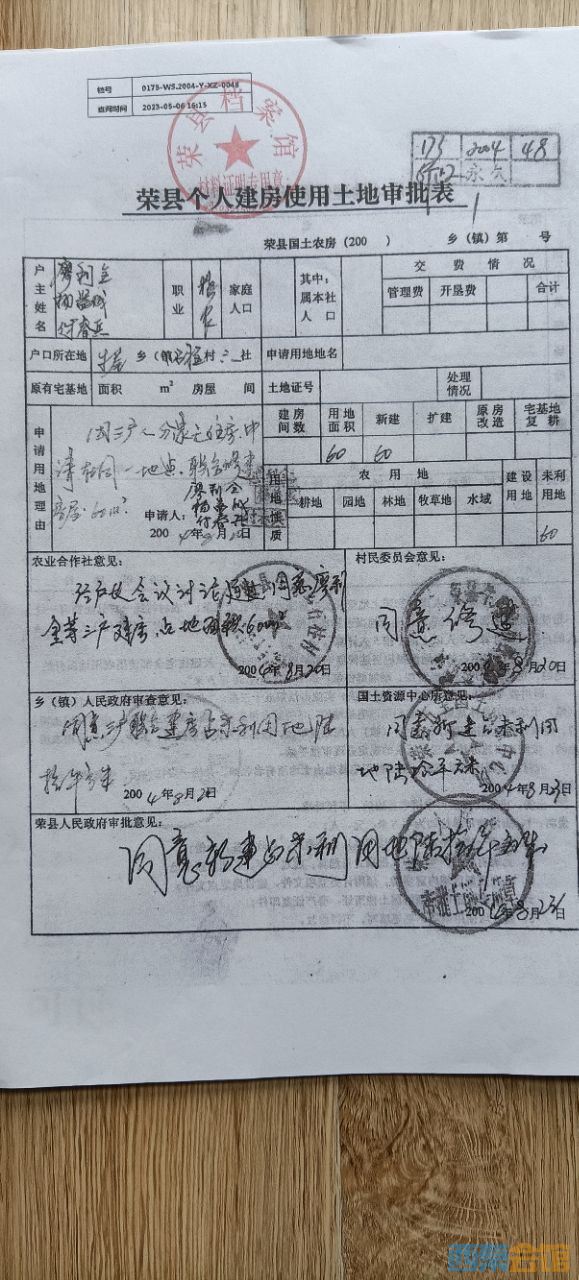 档号 0175-WS.2004-Y-XZ-0048
查阅时间 2023-05-06 16:15
荣县档案馆
材料证明专用章
173 2004 48
荣县个人建房使用土地审批表
荣县国土农房(200 ) 乡(镇)第 号
户主姓名
职业
家庭人口
其中:属本社人口
交费情况
管理费 开垦费 合计
户口所在地 乡(镇) 村 社 申请用地地名
原有宅基地 面积 m² 房屋 间 土地证号 处理情况
申请用地理由
因三户人分家无住房,申
请在同一地点,联合修建
房屋60m²
申请人:
2004年8月20日
建房间数 用地面积 新建 扩建 原房改造 宅基地复耕
60 60
用地性质
农用地 建设用地 未利用地
耕地 园地 林地 牧草地 水域
60
农业合作社意见:
经户长会议讨论通过,同意廖利
全等三户建房占地面积60m²
2004年8月20日
村民委员会意见:
同意修建.
2004年8月20日
乡(镇)人民政府审查意见:
同意三户联合建房占未利用地陆
拾平方米
2004年8月2日
国土资源中心所意见:
同意新建占未利用
地陆拾平方米
2004年8月23日
荣县人民政府审批意见:
同意新建占未利用地陆拾平方米.
2004年8月23日